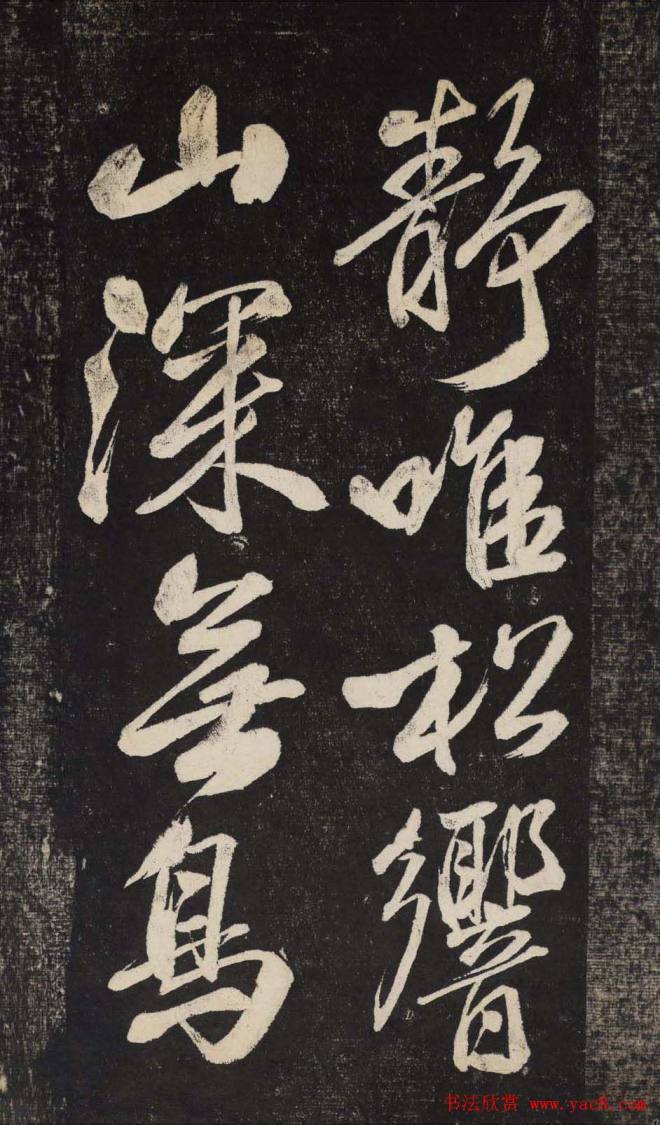 静唯松響
山深無鳥
书法欣赏 www.yac8.com